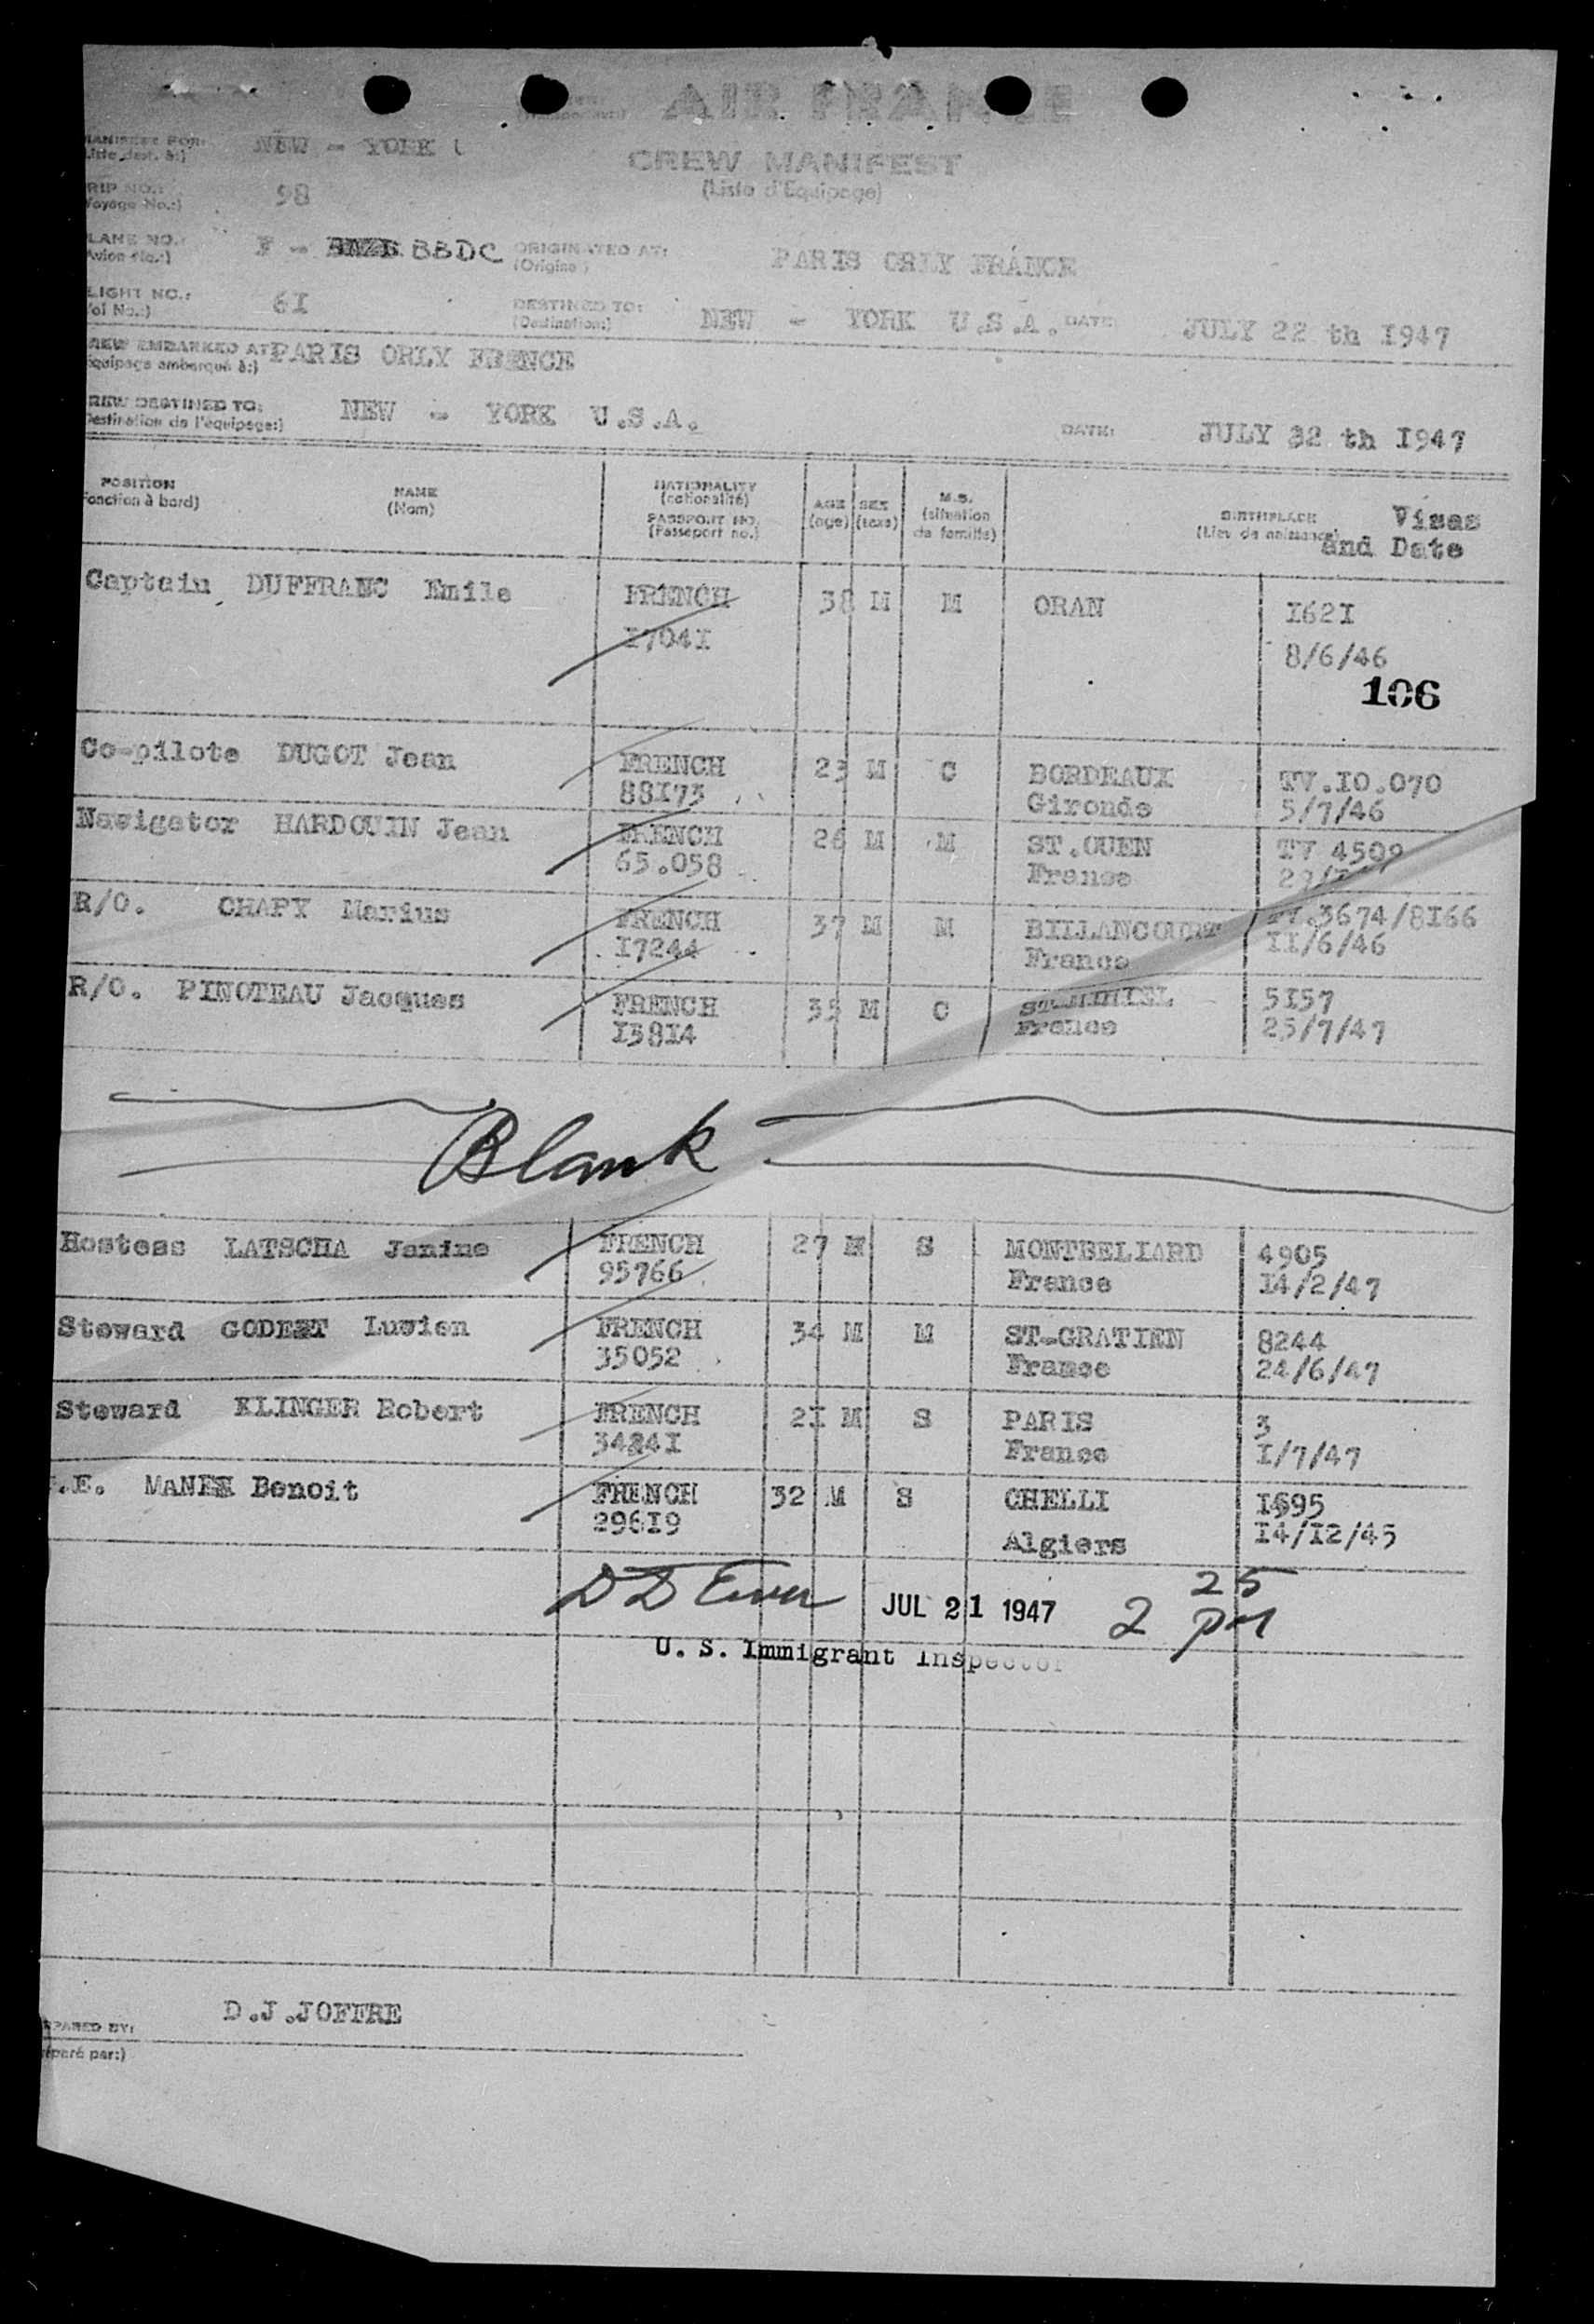 AIR FRANCE
MANIFEST FOR: NEW - YORK
(Liste dest. à:)
CREW MANIFEST
(Liste d'Equipage)
TRIP NO.: 98
(Voyage No.:)
PLANE NO.: F - BBDC
(Avion No.:)
ORIGINATED AT: PARIS ORLY FRANCE
(Origine)
LIGHT NO.: 6I
(Vol No.:)
DESTINED TO: NEW - YORK U.S.A. DATE: JULY 22 th I947
(Destination:)
REW EMBARKED AT PARIS ORLY FRENCE
Equipage embarqué à:)
REW DESTINED TO: NEW - YORK U.S.A. DATE: JULY 32 th I947
Destination de l'équipage:)
POSITION NAME NATIONALITY AGE SEX M.S. BIRTHPLACE Visas
(Fonction à bord) (Nom) (nationalité) (age) (sexe) (situation (Lieu de naissance) and Date
PASSPORT NO. de famille)
(Passeport no.)
Captain DUFFRANC Emile FRENCH 38 M M ORAN I62I
I704I 8/6/46
106
Co-pilote DUGOT Jean FRENCH 23 M C BORDEAUX TV.I0.070
88I73 Gironde 5/7/46
Navigator HARDOUIN Jean FRENCH 26 M M ST.OUEN TV 4509
65.058 France
R/O. CHAPY Marius FRENCH 37 M M BILLANCOURT TV.3674/8I66
I7244 France II/6/46
R/O. PINOTEAU Jacques FRENCH 35 M C 5I57
I38I4 France 25/7/47
Blank
Hostess LATSCHA Janine FRENCH 27 S MONTBELIARD 4905
95766 France I4/2/47
Steward GODEST Lucien FRENCH 34 M M ST-GRATIEN 8244
35052 France 24/6/47
Steward KLINGER Robert FRENCH 2I M S PARIS 3
34241 France I/7/47
.E. Benoit FRENCH 32 M S CHELLI I695
296I9 Algiers I4/I2/45
JUL 21 1947 2 25 pM
U. S. Immigrant Inspector
D.J.JOFFRE
EPARED BY:
éparé par:)